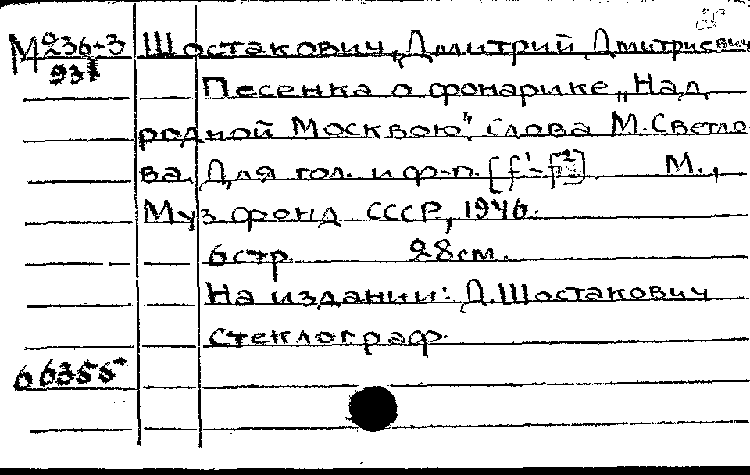 М236-3 Шостакович, Дмитрий Дмитриевич
931 Песенка о фонарике „Над
родной Москвою". Слова М. Светло
ва. Для гол. и ф-п. [f¹-f²] М.,
Муз фонд СССР, 1946.
6 стр. 28 см.
На издании: Д. Шостакович
Стеклограф.
66355